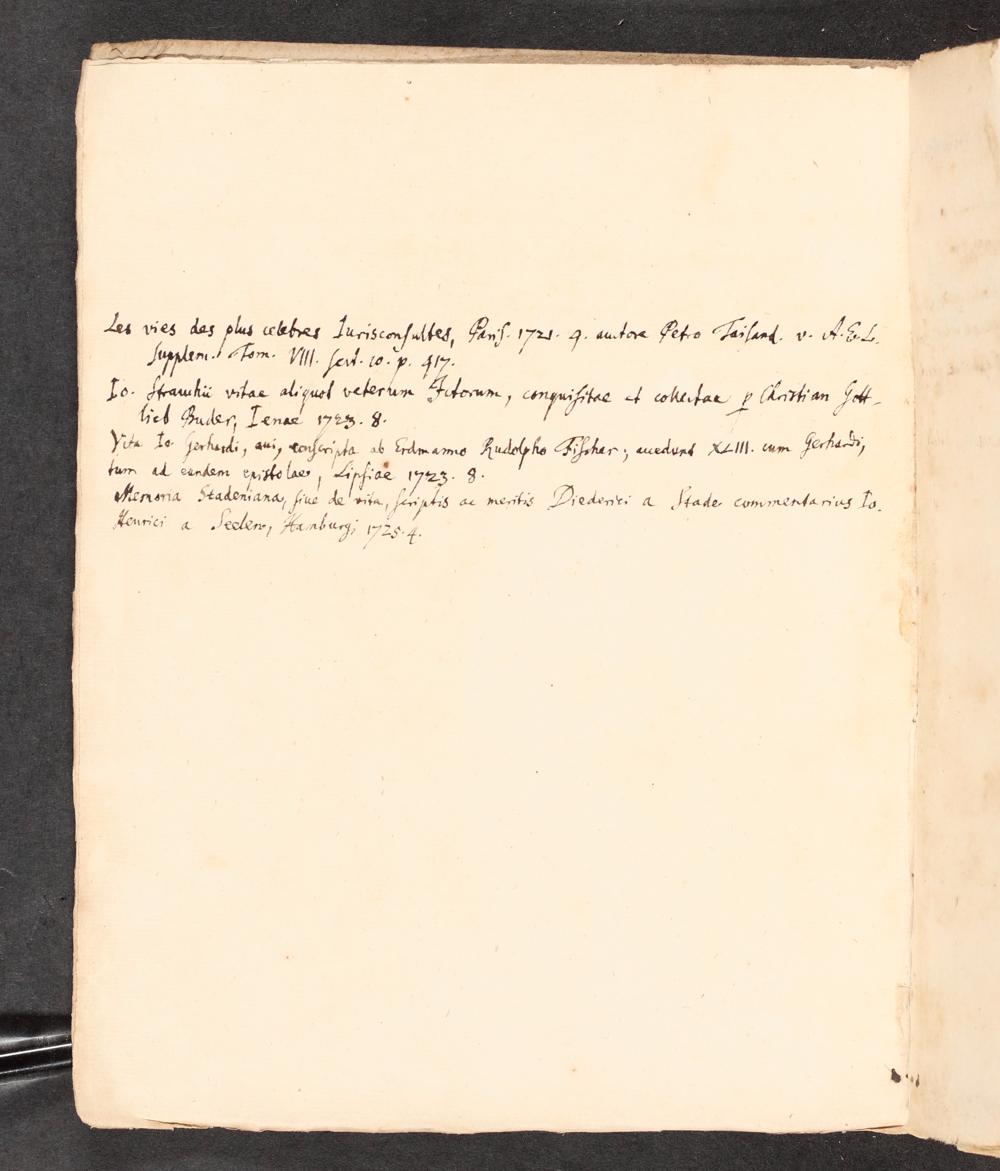 Les vies des plus celebres Iurisconsultes, Paris. 1721. 4. autore Petro Taisand. v. A. E. L.
Supplem. Tom. VIII. Sect. 10. p. 417.
Io. Strauchii vitae aliquot veterum Ictorum, conquisitae et collectae p Christian Gott-
lieb Buder, Ienae 1723. 8.
Vita Io. Gerhardi, aui, conscripta ab Erdmanno Rudolpho Fisscher; accedunt XLIII. cum Gerhardi,
tum ad eundem epistolae, Lipsiae 1723. 8.
Memoria Stadeniana, siue de vita, scriptis ac meritis Diederici a Stade commentarius Io.
Henrici a Seelen, Hamburgi 1725. 4.